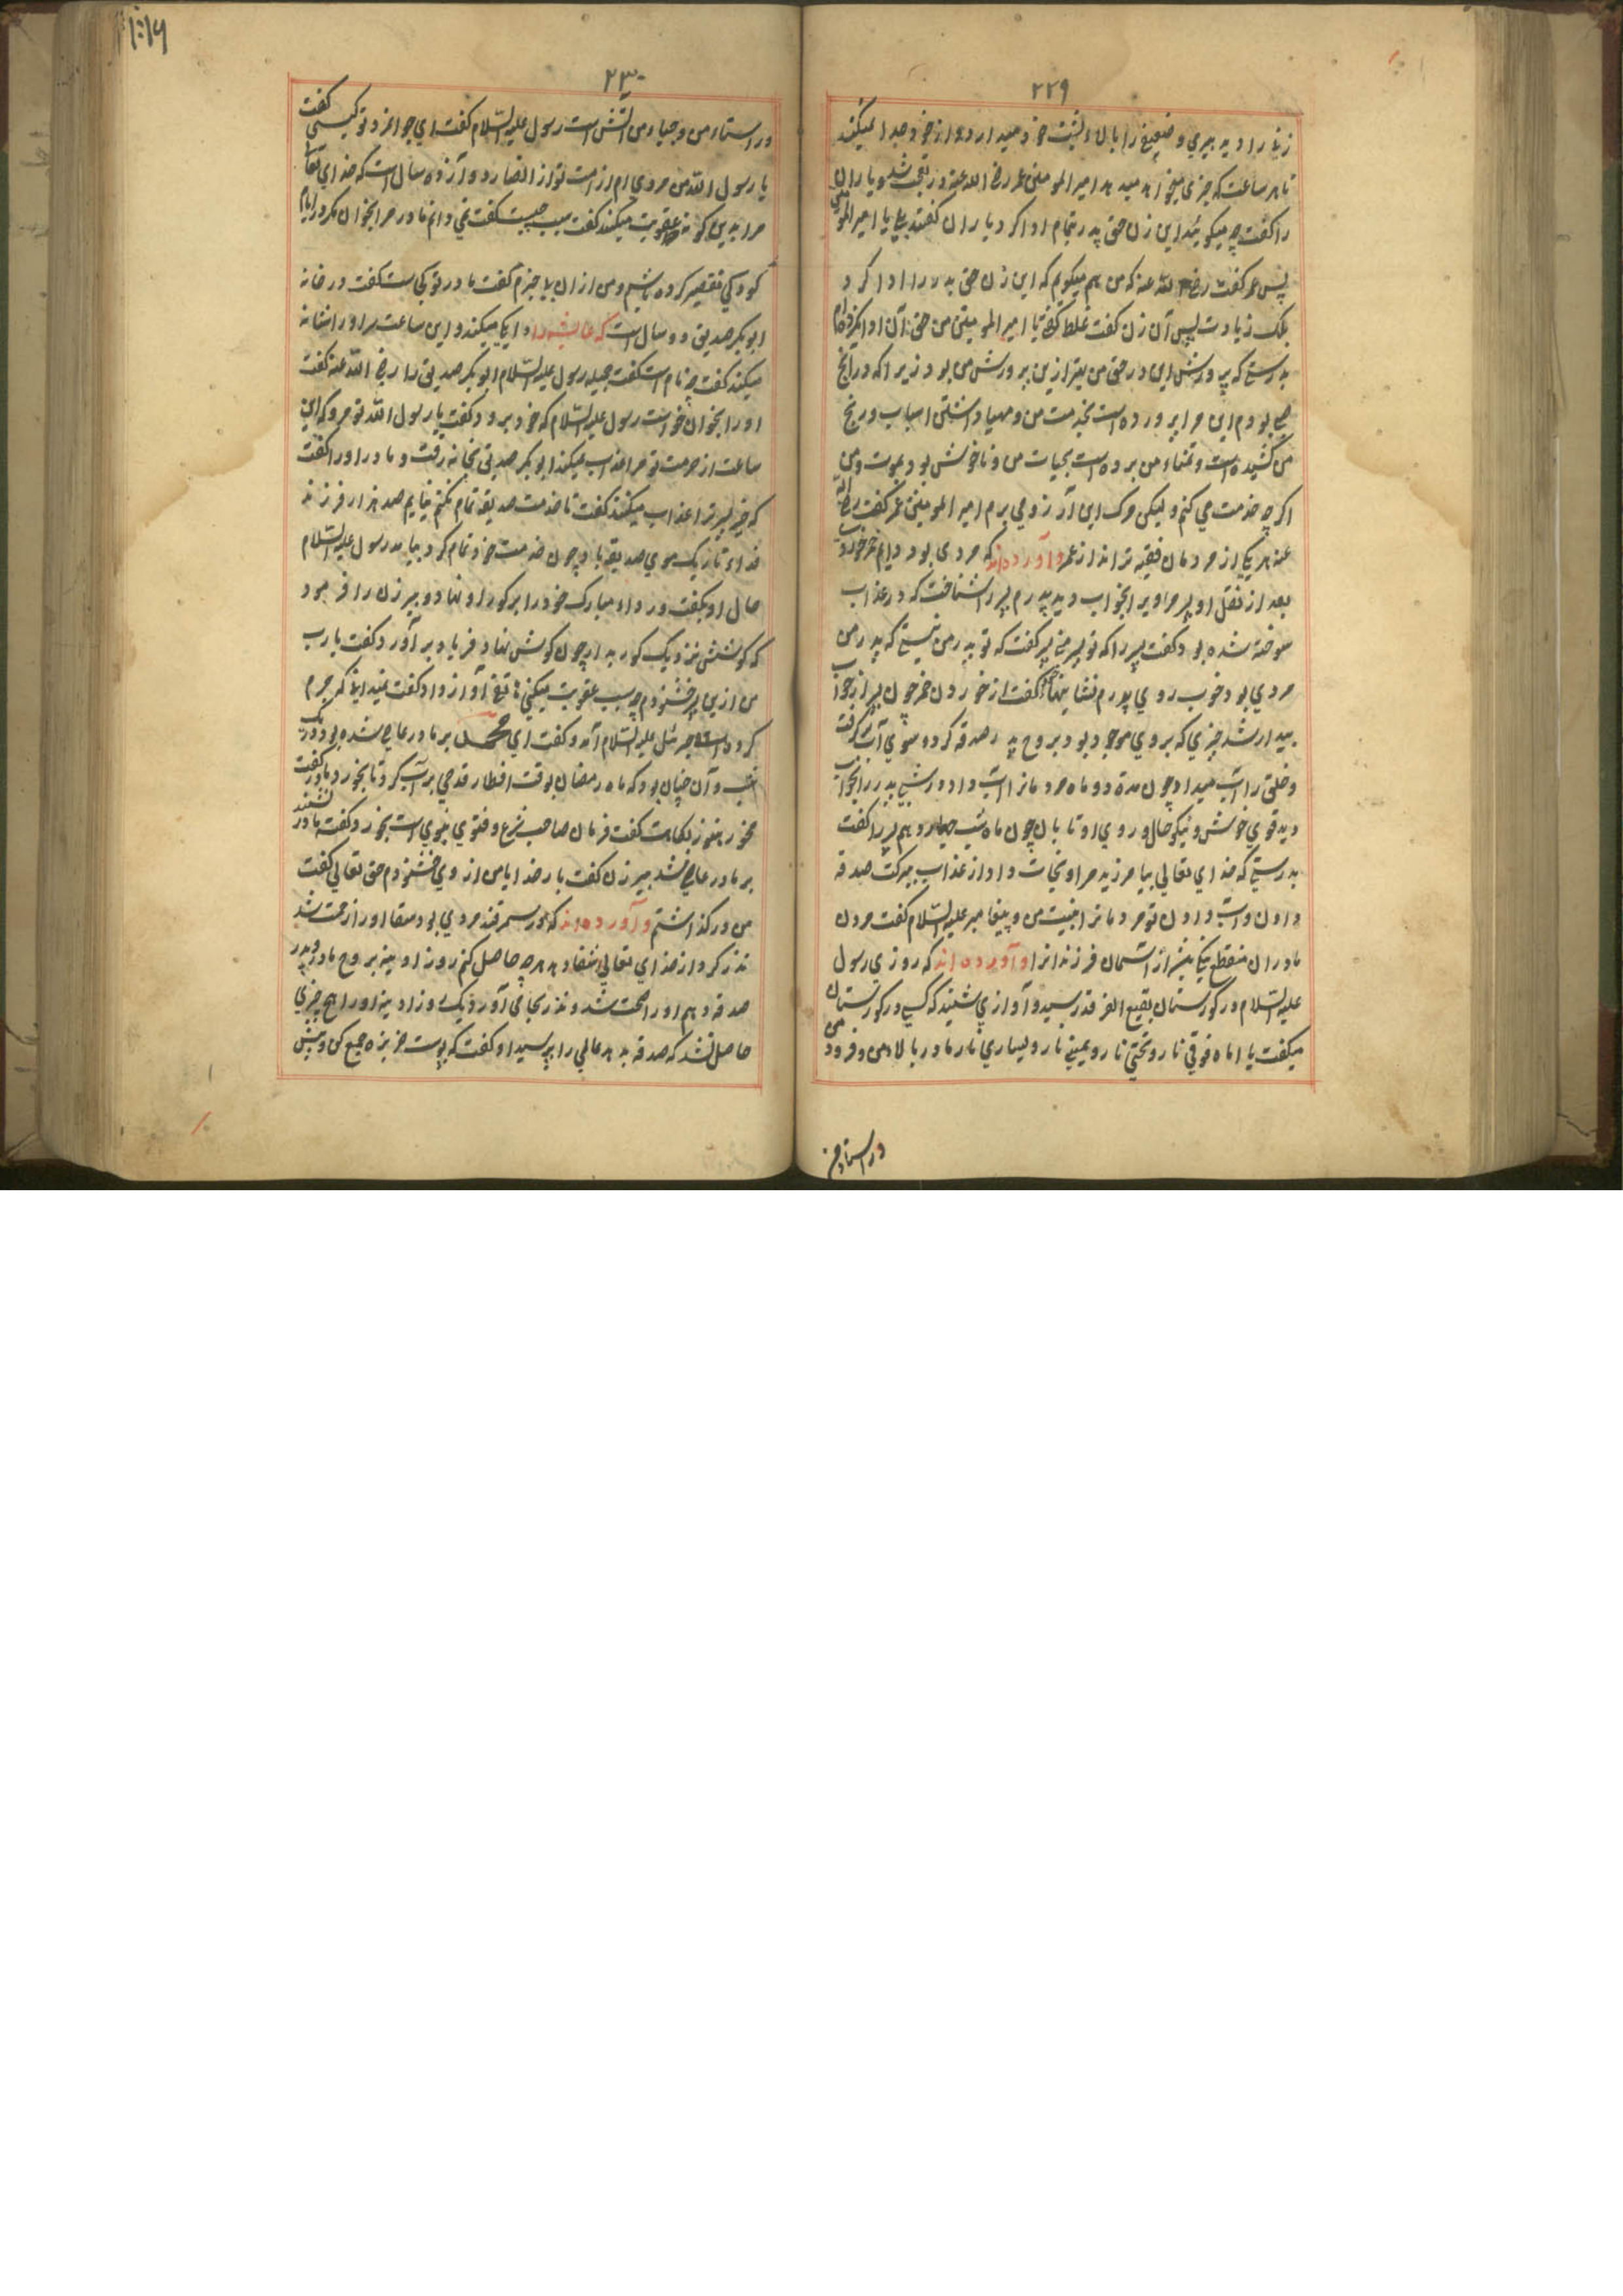 ۲۲۹
زنی را دید پیری و ضعیفی را بالا پشت خود میدارد و از خود جدا نمیکند
تا هر ساعت که چیزی میخواهد میدهد امیر المومنین عمر رضی الله عنه در تعجب شد و یاران
را گفت چه میگویند این زن حق پدر بتمام ادا کرد یاران گفتند بلی یا امیر المومنین
پس عمر گفت رضی الله عنه که من هم میگویم که این زن حق پدر را ادا کرد
بلکه زیادت پس آن زن گفت غلط گفتی یا امیر المومنین من حق آن ادا نکرده ام
بدرستی که پرورش این در حق من بهتر ازین پرورش من بود زیرا که در آنچ
می بودم این مرا پرورده است بخدمت من و مهیا داشتن اسباب و رنج
من کشیده است و تمناء من برده است بحیات من و ناخوش بود بموت و من
اگرچه خدمت می کنم و لیکن مرگ این آرزو می برم امیر المومنین عمر گفت رضی الله
عنه هر یکی از مردمان فقیه تراند از عمر و آورده اند که مردی بود دایم خمر خوردی
بعد از نقل او پسر مر او را بخواب دید پدرم پسر را شناخت که در عذاب
سوخته شده بود گفت پسر را که تو پسر منی پسر گفت که تو پدر من نیستی که پدر من
مردی بود خوب روی پدرم نشانیها گفت از خوردن خمر چون پسر از خواب
بیدار شد چیزی که بروی موجود بود بروح پدر صدقه کرد و سبوی آب بر گرفت
و خلق را آب میداد چون مدة دو ماه مردمانرا آب داد و شبی پدر را بخواب
دید قوی خوش و نیکو حال و روی او تابان چون ماه شب چهاردهم پسر را گفت
بدرستی که خدای تعالی بیامرزید مرا و نجات داد از عذاب ببرکت صدقه
دادن و آب دادن تو مردمانرا بنیت من و پیغامبر علیه السلام گفت مردن
مادران منقطع نیکی بیش از آسمان فرزندانرا و آورده اند که روزی رسول
علیه السلام در گورستان بقیع الغرقد رسید و آوازی شنید که کسی در گورستان
میگفت یا اماه فوقی نار و تحتی نار و یمینی نار و یساری نار مادر بالا من و فرود من
در استاد من
۲۳۰
در استاد من و چپاء من آتش است رسول علیه السلام گفت ای جوانمرد تو کیستی گفت
یا رسول الله من مردی ام از امت تو از انصار دوازده سال است که خدای تعالی
مرا بدین گونه عقوبت میکند گفت سبب چیست گفت نمی دانم مادر مرا بخوان مگر در ایام
کودکی تقصیر کرده باشم و من از ان بلا خبرم گفت مادر تو کی ست گفت در خانه
ابوبکر صدیق دو سال است که عایشه را دایگی میکند و این ساعت سر او را شانه
میکند گفت چه نام است گفت جمیله رسول علیه السلام ابوبکر صدیق را رضی الله عنه گفت
او را بخوان خواست رسول علیه السلام که خود برود گفت یا رسول الله تو مرو که این
ساعت از حرمت تو مرا عذاب میکند ابوبکر صدیق بخانه رفت و مادر او را گفت
که خیز پسر ترا عذاب میکنند گفت تا خدمت صدیقه تمام نکنم نیایم صد هزار فرزند
فداء تار یک موی صدیقه باد چون خدمت خود تمام کرد بیامد رسول علیه السلام
حال او بگفت و رداء مبارک خود را بر گور او نهاد و پیر زن را فرمود
که گوشش نزدیک گور بدار چون گوش نهاد فریاد برآورد گفت یا رب
من ازین پسر خشنودم چه سبب عقوبت میکنی هاتف آواز داد گفت نمیدانی که جرم
کرده است جبرئیل علیه السلام آمد و گفت ای محمد بر مادر عاصی شده بود و در یک
شب و آن چنان بود که ماه رمضان بوقت افطار قدحی بر آب کرد تا بخورد مادر گفت
مخور هنوز بگاه است گفت فرمان صاحب شرع و فتوی نبوی است بخورد گفت مادر نشنید
بر مادر عاصی شد پیر زن گفت بار خدایا من از وی خشنودم حق تعالی گفت
من در گذاشتم و آورده اند که در سمرقند مردی بود سقا او را زحمت شد
نذر کرد از خدای تعالی شفا دهد هر چه حاصل کنم روز ادینه بروح مادر و پدر
صدقه دهم او را صحت شد و نذر بجای آورد یک روز ادینه او را هیچ چیزی
حاصل نشد که صدقه بدهد عالمی را پرسید او گفت که پوست خربزه جمع کن و پیش